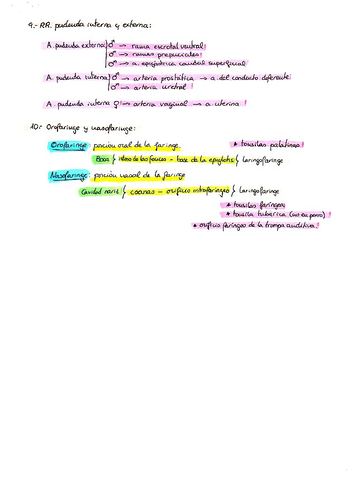 9.- RR. pudenda interna y externa:
A. pudenda externa ♂ → rama escrotal ventral!
♂ → ramas prepuciales!
♂ → a. epigástrica caudal superficial
A. pudenda interna ♂ → arteria prostática → a. del conducto deferente
♂ → arteria uretral!
A. pudenda interna ♀ → arteria vaginal → a. uterina!
10.- Orofaringe y nasofaringe:
Orofaringe: porción oral de la faringe * tonsilas palatinas!
Boca } istmo de las fauces - base de la epiglotis { laringofaringe
Nasofaringe: porción nasal de la faringe
Cavidad nasal } coanas - orificio intrafaríngeo } laringofaringe
* tonsilas faríngeas
* tonsila tubárica (no en perro)!
* orificio faríngeo de la trompa auditiva!